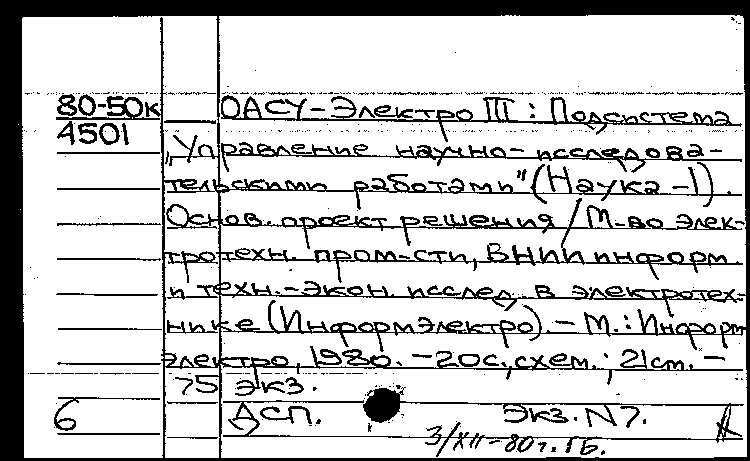 80-50к ОАСУ-Электро III : Подсистема
4501 „Управление научно-исследова-
тельскими работами" (Наука-1).
Основ. проект. решения / М-во элек-
тротехн. пром-сти, ВНИИ информ.
и техн.-экон. исслед. в электротех-
нике (Информэлектро). - М.: Информ
электро, 1980. - 20с., схем.; 21см. -
75 экз.
6 ДСП. Экз. N 7.
3/XII-80г. ГБ.